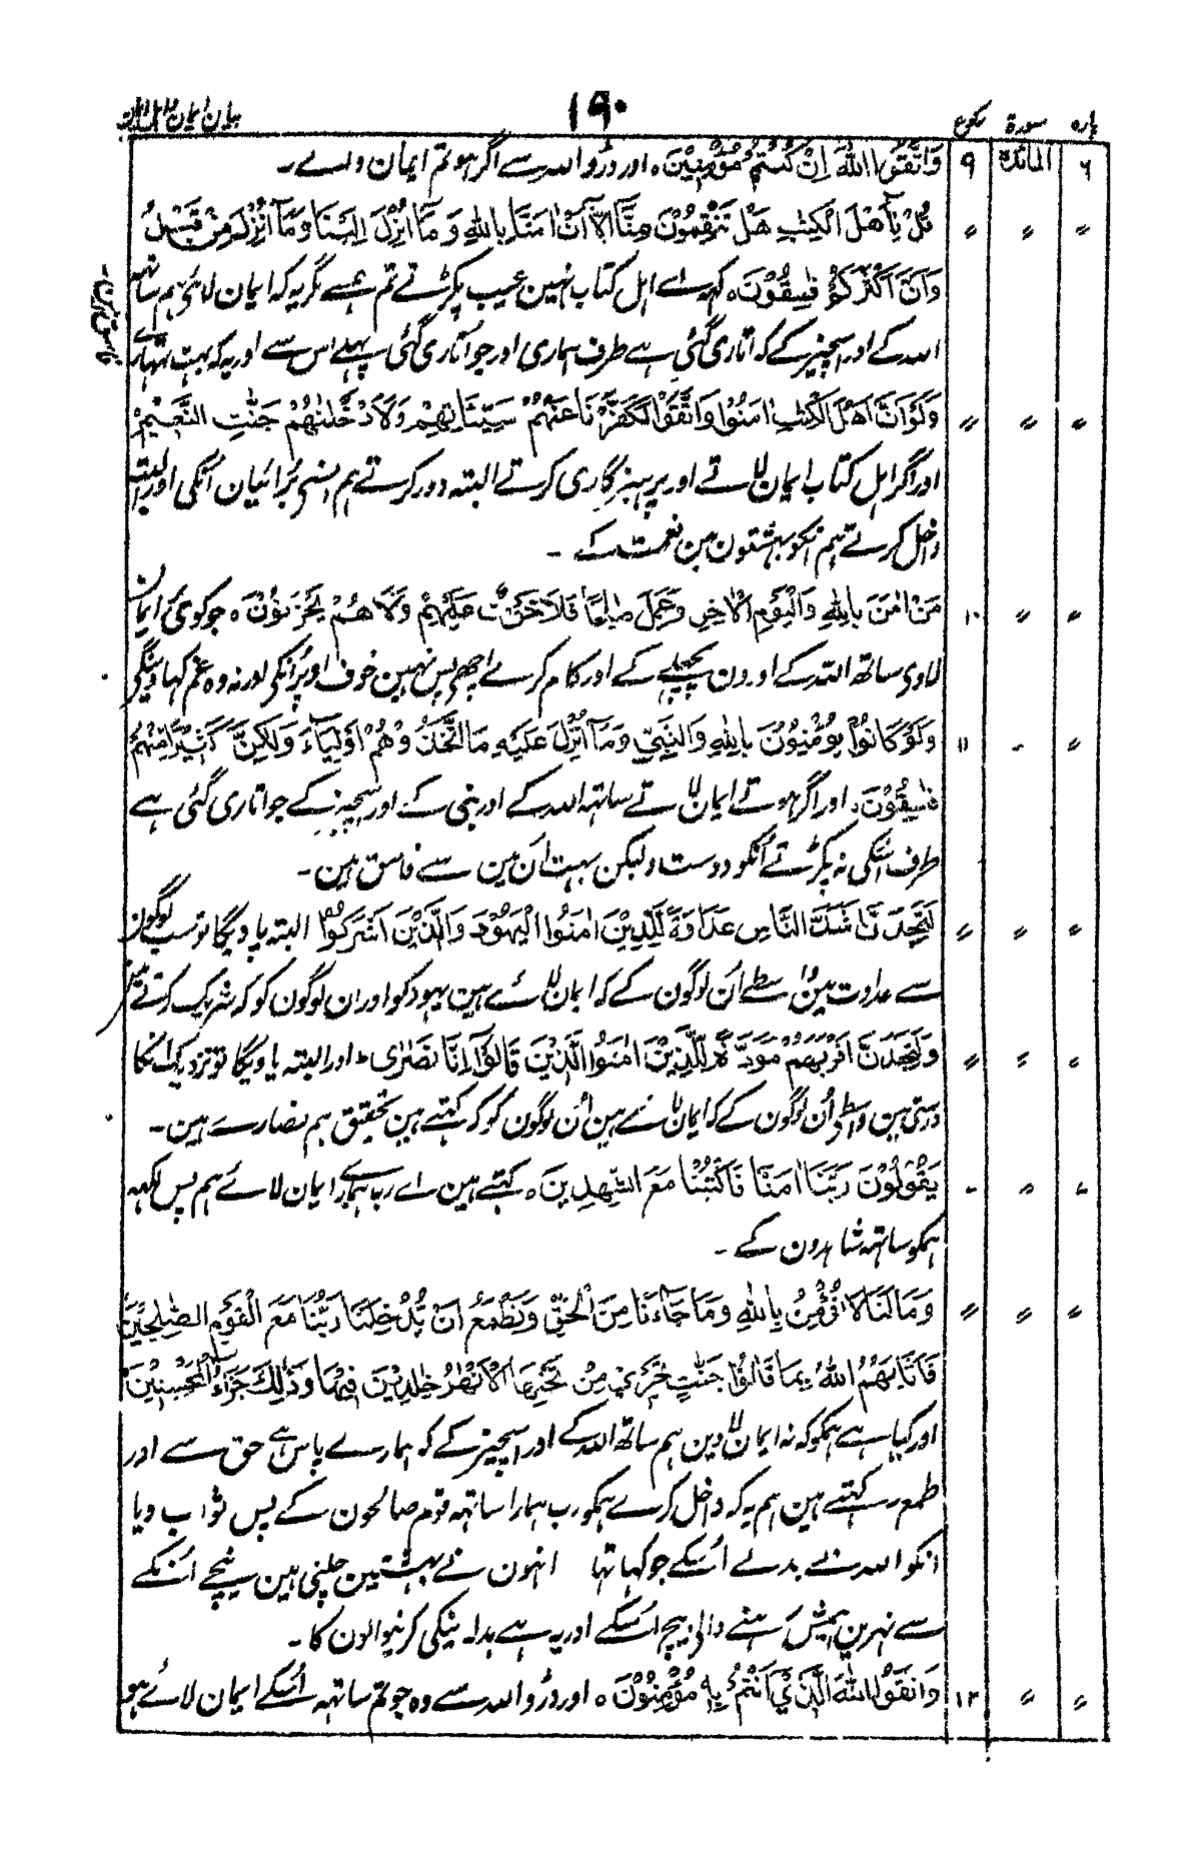 پارہ سورۃ رکوع ۱۹۰ بیان ایمان
۶ المائدۃ ۹ وَاتَّقُوا اللّٰہَ اِنْ کُنْتُمْ مُّؤْمِنِیْنَ ۰ اور ڈرو اللہ سے اگر ہو تم ایمان والے ۔
〃 〃 〃 قُلْ یٰٓاَھْلَ الْکِتٰبِ ھَلْ تَنْقِمُوْنَ مِنَّا اِلَّآ اَنْ اٰمَنَّا بِاللّٰہِ وَ مَآ اُنْزِلَ اِلَیْنَا وَمَآ اُنْزِلَ مِنْ قَبْلُ
وَاَنَّ اَکْثَرَکُمْ فٰسِقُوْنَ ۰ کہہ اے اہل کتاب نہین عیب پکڑتے تم ہمسے مگر یہ کہ ایمان لائے ہم ساتھ
اللہ کے اور اسچیز کے کہ اتاری گئی ہے طرف ہماری اور جو اتاری گئی پہلے اس سے اور یہ کہ بہت تمہارے
فاسق ہین ۔
〃 〃 〃 وَلَوْ اَنَّ اَھْلَ الْکِتٰبِ اٰمَنُوْا وَاتَّقَوْا لَکَفَّرْنَا عَنْھُمْ سَیِّئَاتِھِمْ وَلَاَدْخَلْنٰھُمْ جَنّٰتِ النَّعِیْمِ
اور اگر اہل کتاب ایمان لاتے اور پرہیزگاری کرتے البتہ دور کرتے ہم انسے برائیان انکی اور البتہ
داخل کرتے ہم انکو بہشتون مین نعمت کے ۔
〃 〃 ۱۰ مَنْ اٰمَنَ بِاللّٰہِ وَالْیَوْمِ الْاٰخِرِ وَعَمِلَ صَالِحًا فَلَا خَوْفٌ عَلَیْھِمْ وَلَا ھُمْ یَحْزَنُوْنَ ۰ جو کوی ایمان
لاوی ساتھ اللہ کے اور دن پچھلے کے اور کام کرے اچھے پس نہین خوف اوپر انکی اور نہ وہ غم کہاوینگی
〃 〃 ۱۱ وَلَوْ کَانُوْا یُؤْمِنُوْنَ بِاللّٰہِ وَالنَّبِیِّ وَمَآ اُنْزِلَ عَلَیْہِ مَا اتَّخَذُوْھُمْ اَوْلِیَآءَ وَلٰکِنَّ کَثِیْرًا مِّنْھُمْ
فٰسِقُوْنَ ۰ اور اگر ہوتے ایمان لاتے ساتہہ اللہ کے اور نبی کے اور اسچیز کے جو اتاری گئی ہے
طرف اسکی نہ پکڑتے اُنکو دوست ولیکن بہت اُن مین سے فاسق ہین ۔
〃 〃 〃 لَتَجِدَنَّ اَشَدَّ النَّاسِ عَدَاوَةً لِّلَّذِیْنَ اٰمَنُوا الْیَھُوْدَ وَالَّذِیْنَ اَشْرَکُوْا البتہ پاویگا تو سب لوگون
سے عداوت مین واسطے اُن لوگون کے کہ ایمان لائے ہین یہود کو اور ان لوگون کو کہ شریک کرتے ہین
〃 〃 〃 وَلَتَجِدَنَّ اَقْرَبَھُمْ مَّوَدَّةً لِّلَّذِیْنَ اٰمَنُوا الَّذِیْنَ قَالُوْٓا اِنَّا نَصٰرٰی ط اور البتہ پاویگا تو نزدیک انکا
دوستی مین واسطے اُن لوگون کے کہ ایمان لائے ہین اُن لوگون کو کہ کہتے ہین تحقیق ہم نصارے ہین ۔
〃 〃 〃 یَقُوْلُوْنَ رَبَّنَا اٰمَنَّا فَاکْتُبْنَا مَعَ الشّٰھِدِیْنَ ۰ کہتے ہین اے رب ہمارے ایمان لائے ہم پس لکہہ
ہمکو ساتہہ شاہدون کے ۔
〃 〃 〃 وَمَا لَنَا لَا نُؤْمِنُ بِاللّٰہِ وَمَا جَآءَنَا مِنَ الْحَقِّ وَنَطْمَعُ اَنْ یُّدْخِلَنَا رَبُّنَا مَعَ الْقَوْمِ الصّٰلِحِیْنَ
فَاَثَابَھُمُ اللّٰہُ بِمَا قَالُوْا جَنّٰتٍ تَجْرِیْ مِنْ تَحْتِھَا الْاَنْھٰرُ خٰلِدِیْنَ فِیْھَا وَذٰلِکَ جَزَآءُ الْمُحْسِنِیْنَ
اور کیا ہے ہمکو کہ نہ ایمان لاوین ہم ساتھ اللہ کے اور اسچیز کے کہ ہمارے پاس ہے حق سے اور
طمع رکہتے ہین ہم یہ کہ داخل کرے ہمکو رب ہمارا ساتہہ قوم صالحون کے پس ثواب دیا
انکو اللہ نے بدلے اُسکے جو کہا تہا انہون نے بہشتین چلتی ہین نیچے اُنکے
سے نہرین ہمیش رہنے والی بیچ اُسکے اور یہ ہے بدلہ نیکی کرنیوالون کا ۔
〃 〃 ۱۲ وَاتَّقُوا اللّٰہَ الَّذِیْٓ اَنْتُمْ بِہٖ مُؤْمِنُوْنَ ۰ اور ڈرو اللہ سے وہ جو تم ساتہہ اُسکے ایمان لائے ہو